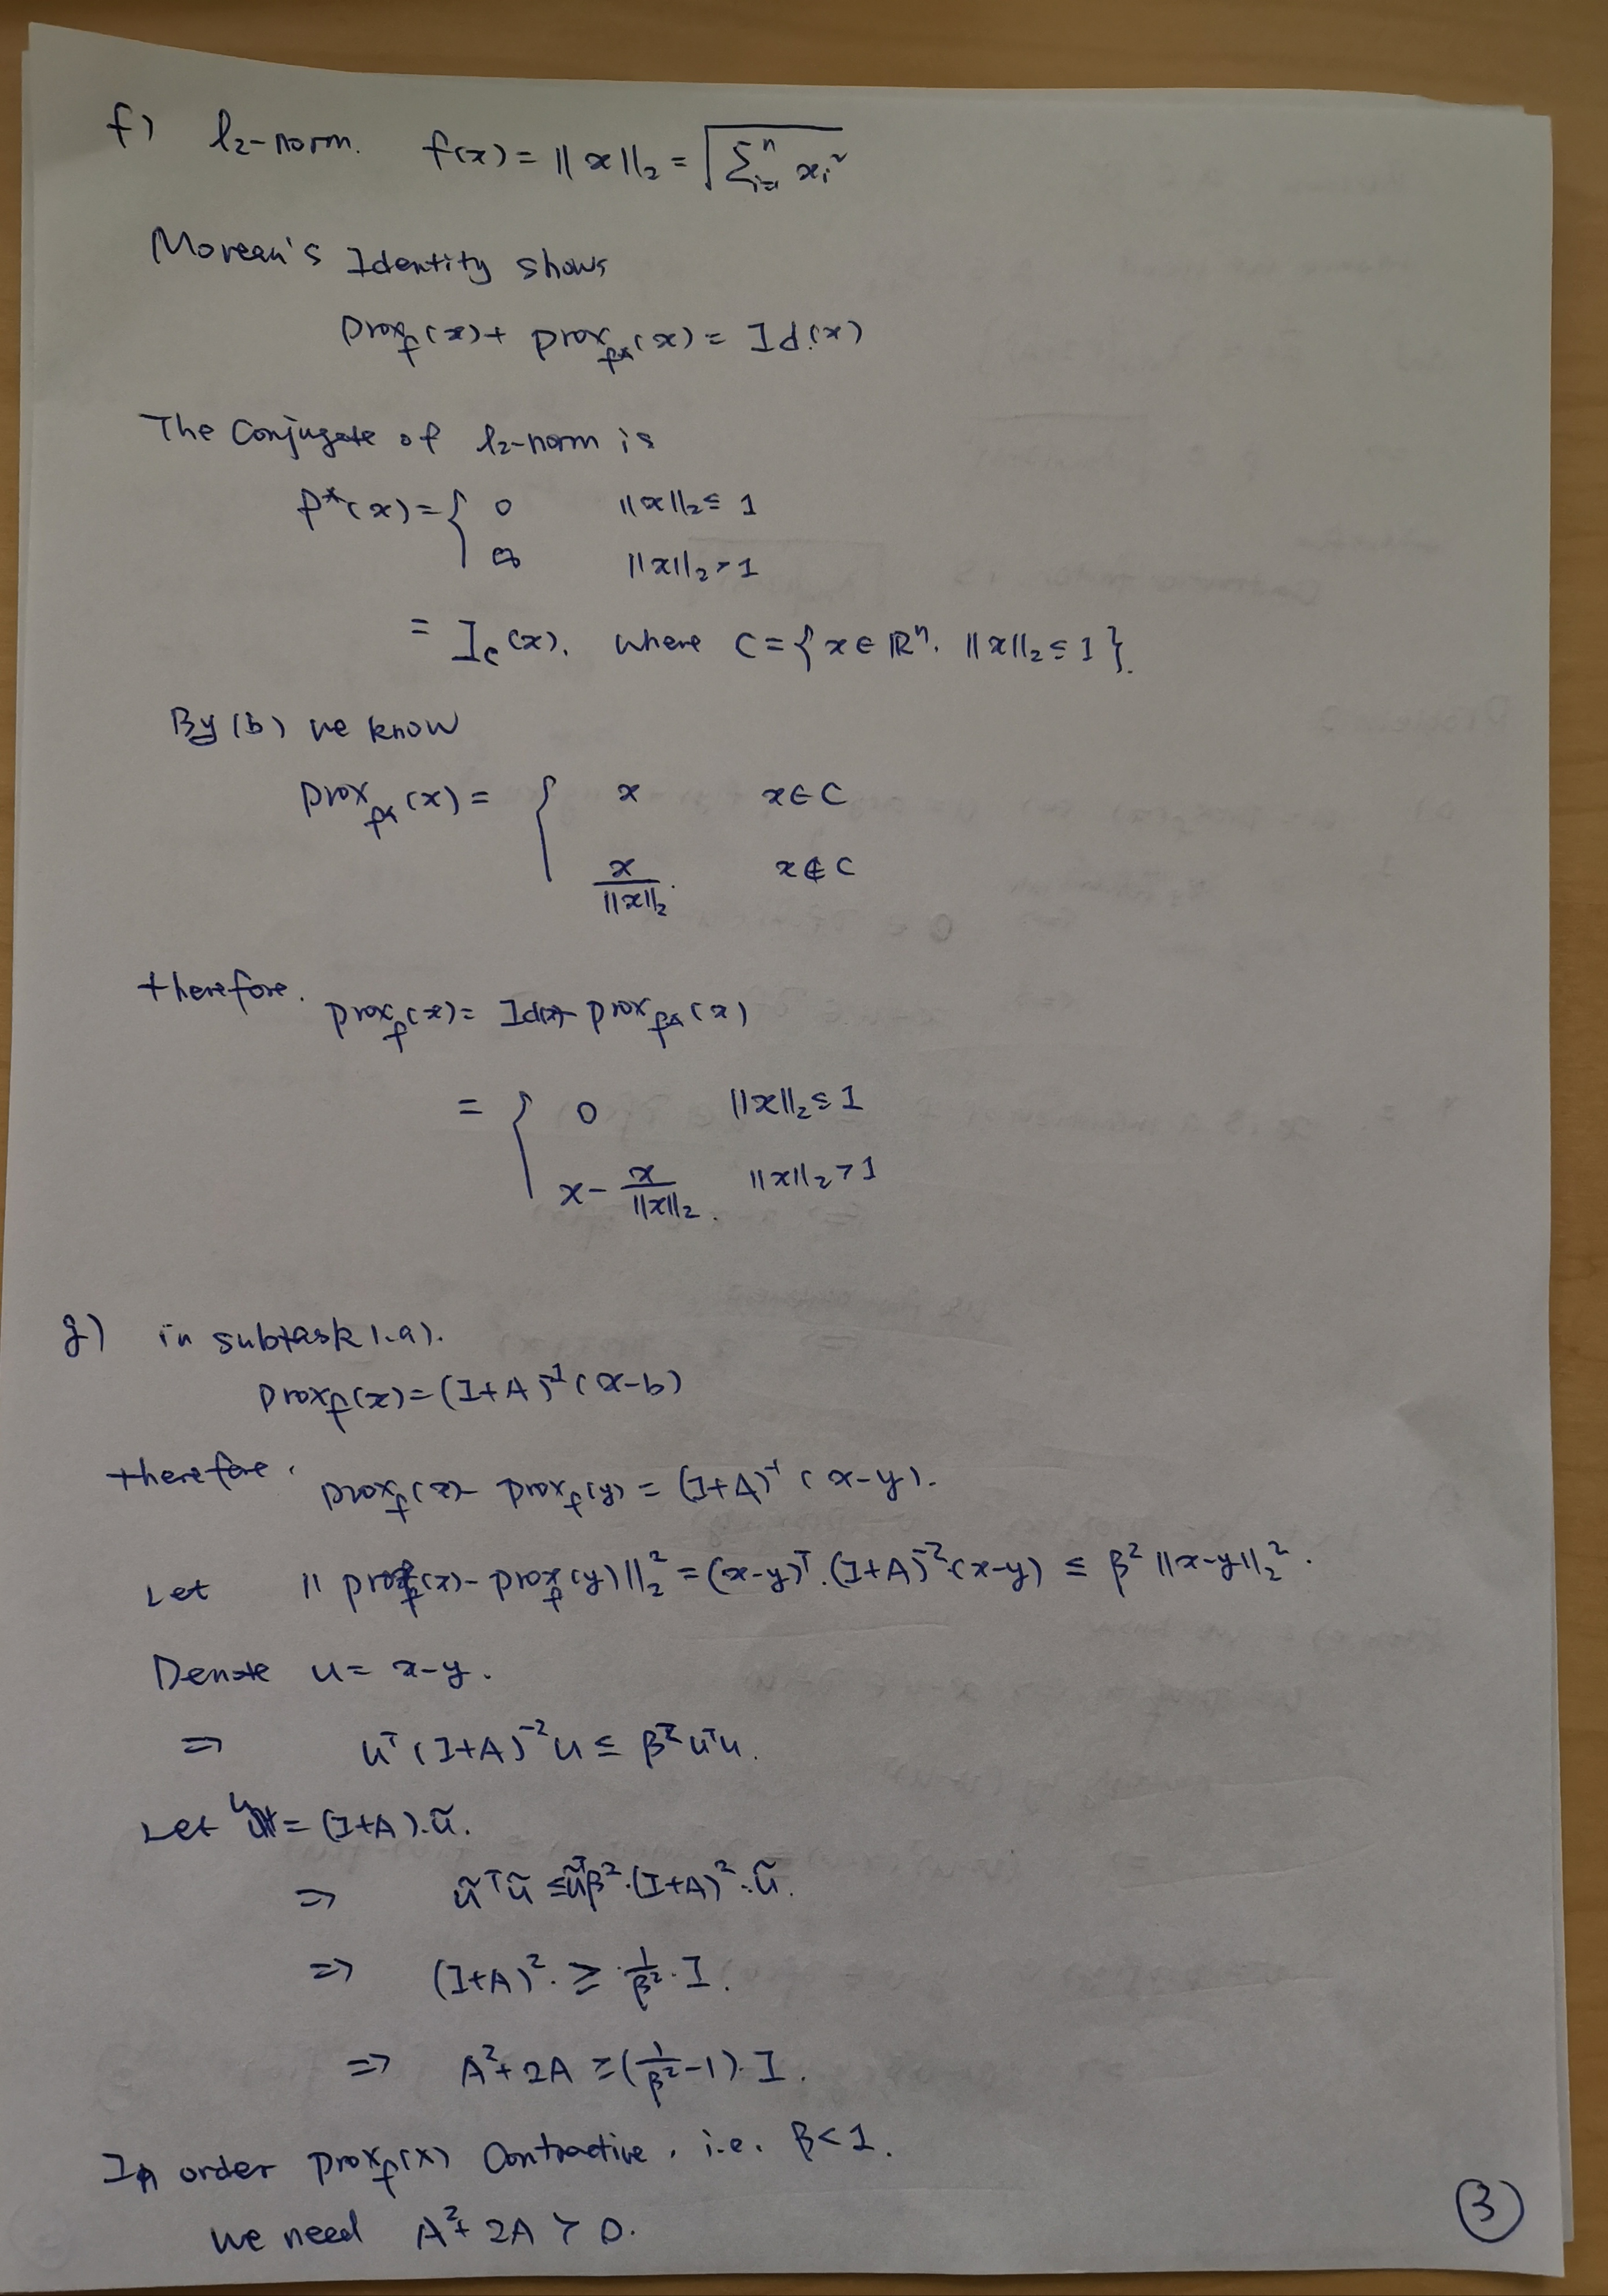 f) l₂-norm. f(x) = ||x||₂ = √(∑ᵢ₌₁ⁿ xᵢ²)
Moreau's Identity shows
prox_f(x) + prox_f*(x) = Id(x)
The Conjugate of l₂-norm is
f*(x) = { 0 ||x||₂ ≤ 1
∞ ||x||₂ > 1
= I_C(x). where C = {x ∈ ℝⁿ. ||x||₂ ≤ 1}.
By (b) we know
prox_f*(x) = { x x ∈ C
x/||x||₂. x ∉ C
therefore. prox_f(x) = Id(x) - prox_f*(x)
= { 0 ||x||₂ ≤ 1
x - x/||x||₂. ||x||₂ > 1
g) in subtask 1.a).
prox_f(x) = (I+A)⁻¹(x-b)
therefore. prox_f(x) - prox_f(y) = (I+A)⁻¹(x-y).
Let ||prox_f(x) - prox_f(y)||₂² = (x-y)ᵀ.(I+A)⁻²(x-y) ≤ β²||x-y||₂².
Denote u = x-y.
⇒ uᵀ(I+A)⁻²u ≤ β²uᵀu.
Let u = (I+A).ũ.
⇒ ũᵀũ ≤ ũᵀβ².(I+A)².ũ.
⇒ (I+A)². ≥ 1/β².I.
⇒ A²+2A ≥ (1/β²-1).I.
In order prox_f(x) Contractive, i.e. β<1.
we need A²+2A ≻ 0.
③